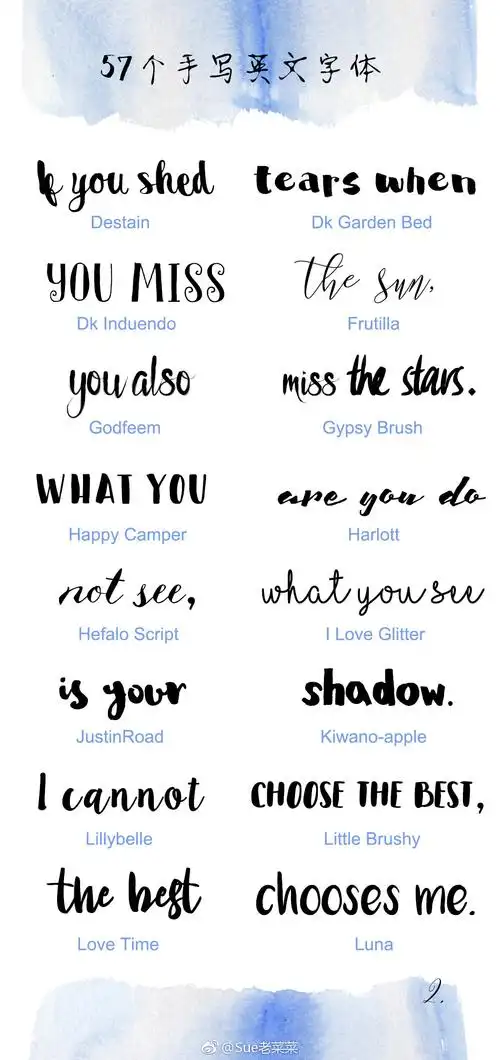 57个手写英文字体
If you shed tears when
Destain Dk Garden Bed
YOU MISS the sun,
Dk Induendo Frutilla
you also miss the stars.
Godfeem Gypsy Brush
WHAT YOU are you do
Happy Camper Harlott
not see, what you see
Hefalo Script I Love Glitter
is your shadow.
JustinRoad Kiwano-apple
I cannot CHOOSE THE BEST,
Lillybelle Little Brushy
the best chooses me.
Love Time Luna
2.
@Sue老菜菜